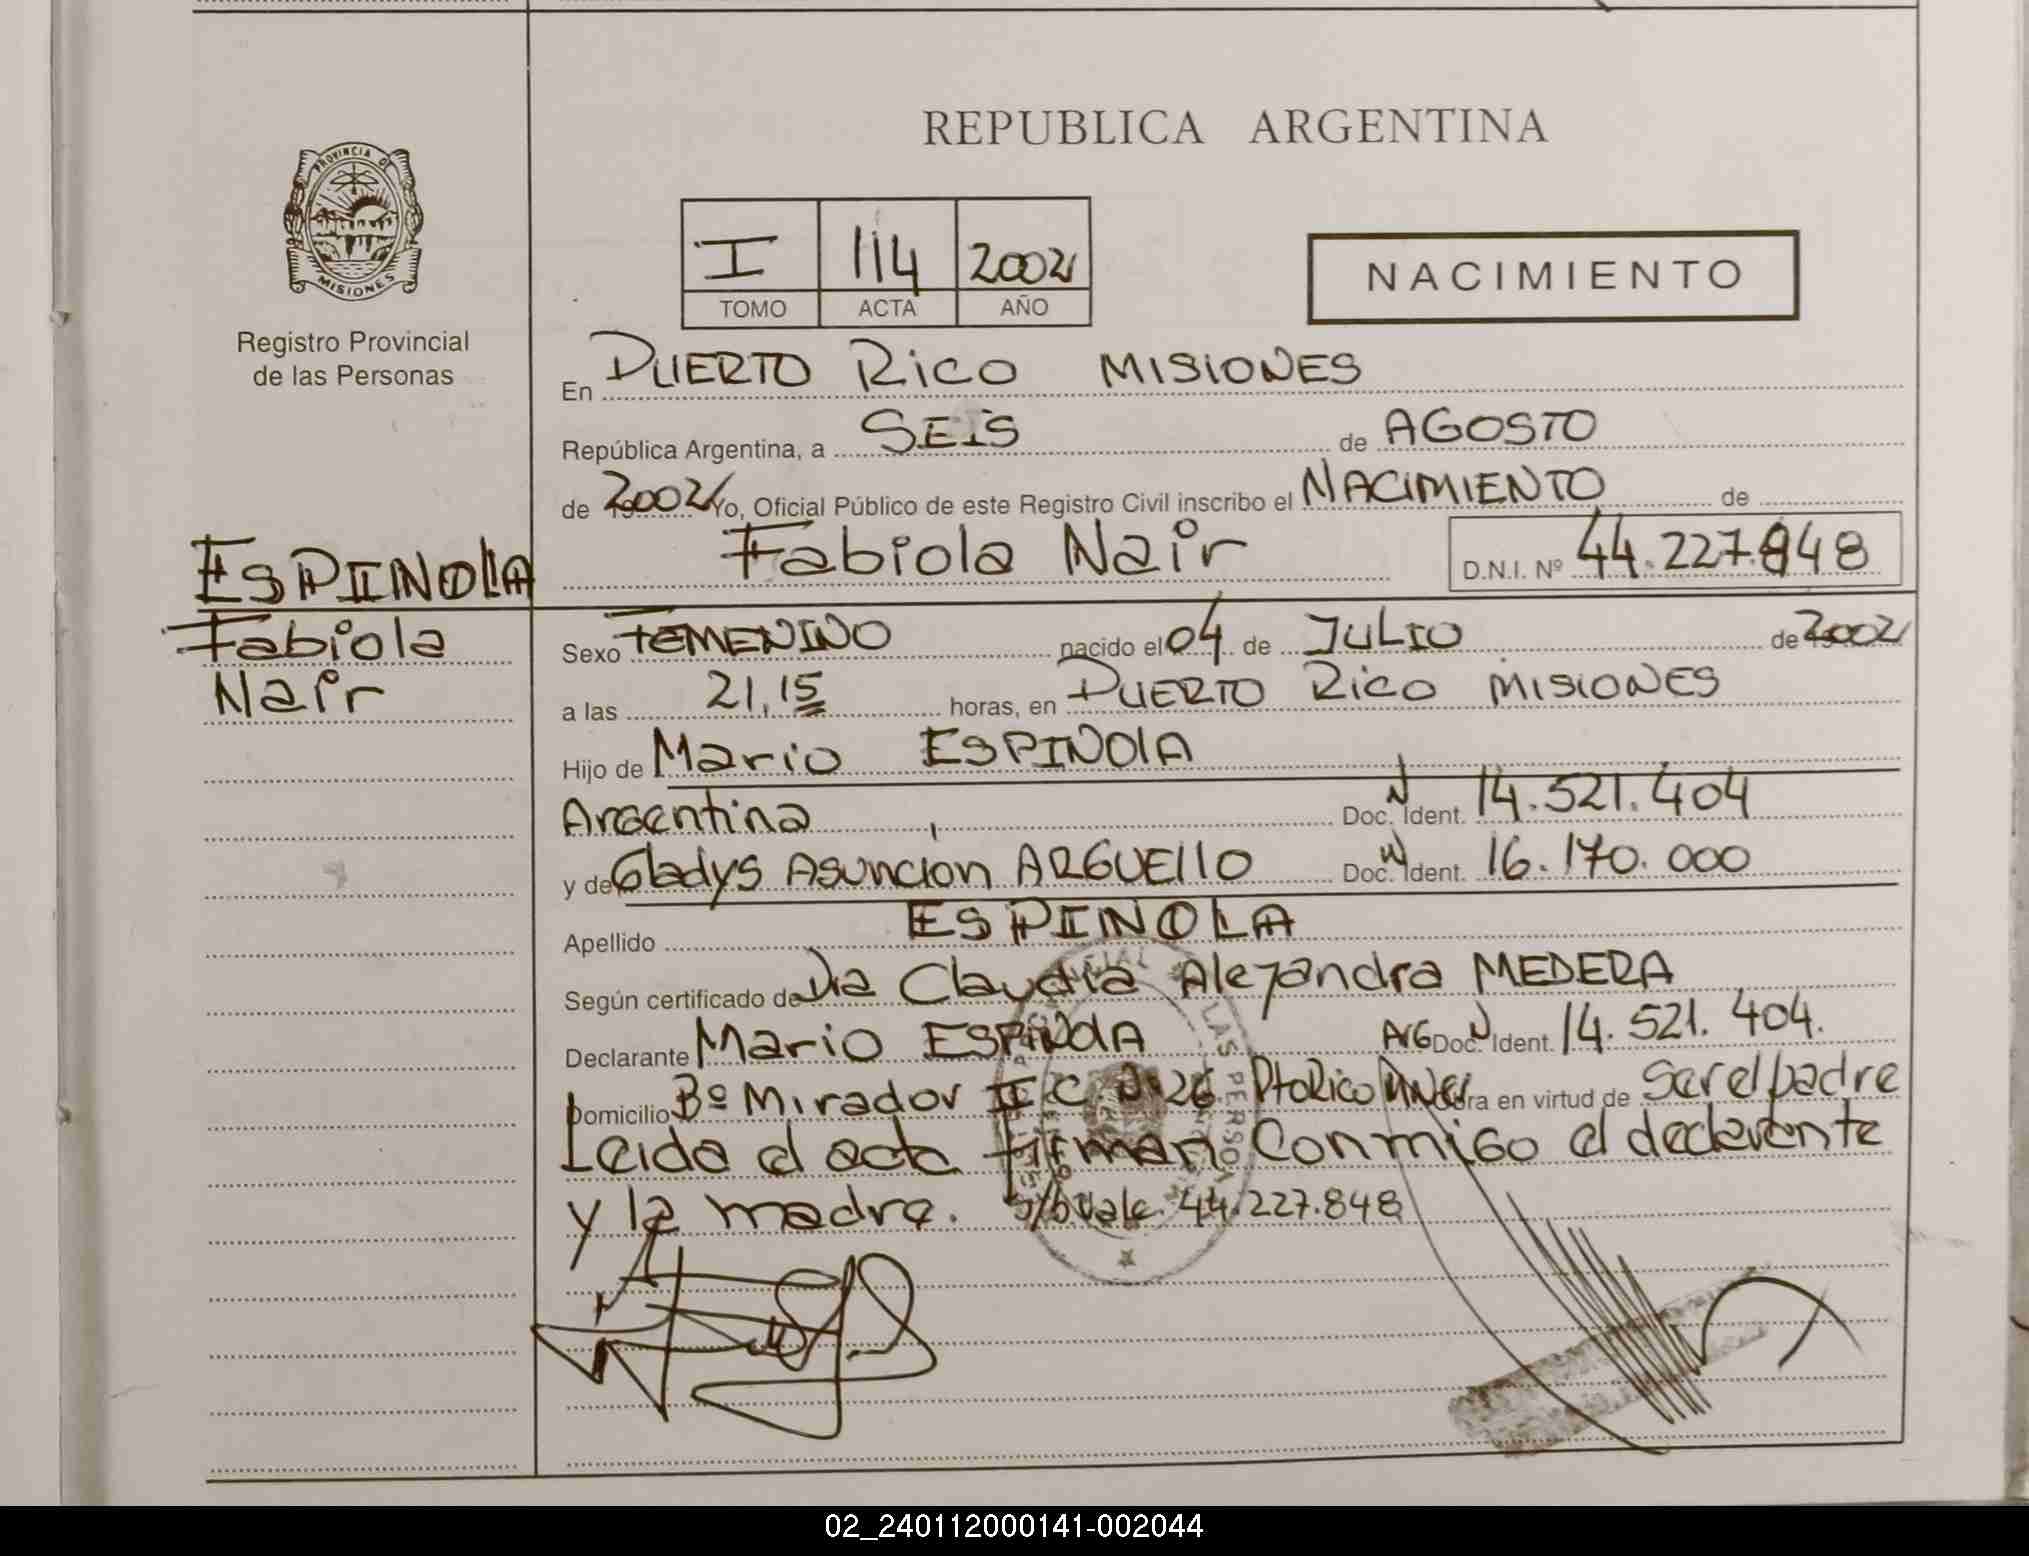 REPUBLICA ARGENTINA
PROVINCIA DE MISIONES
Registro Provincial
de las Personas
I 114 2002
TOMO ACTA AÑO
NACIMIENTO
En PUERTO RICO MISIONES
República Argentina, a SEIS de AGOSTO
de 2002 Yo, Oficial Público de este Registro Civil inscribo el NACIMIENTO de
Fabiola Nair D.N.I. Nº 44.227.848
ESPINOLA
Fabiola
Nair
Sexo FEMENINO nacido el 04 de JULIO de 2002
a las 21,15 horas, en PUERTO RICO MISIONES
Hijo de Mario ESPINOLA
Argentina, Doc. N Ident. 14.521.404
y de Gladys Asuncion ARGUELLO Doc. N Ident. 16.170.000
Apellido ESPINOLA
Según certificado de Dra Claudia Alejandra MEDERA
Declarante Mario ESPINOLA ARG Doc. N Ident. 14.521.404.
Domicilio Bº Mirador II C. Nº 26 Pto Rico Mnes obra en virtud de Ser el padre
Leida el acta firman Conmigo el declarante
y la madre. S/b Vale. 44.227.848
02_240112000141-002044